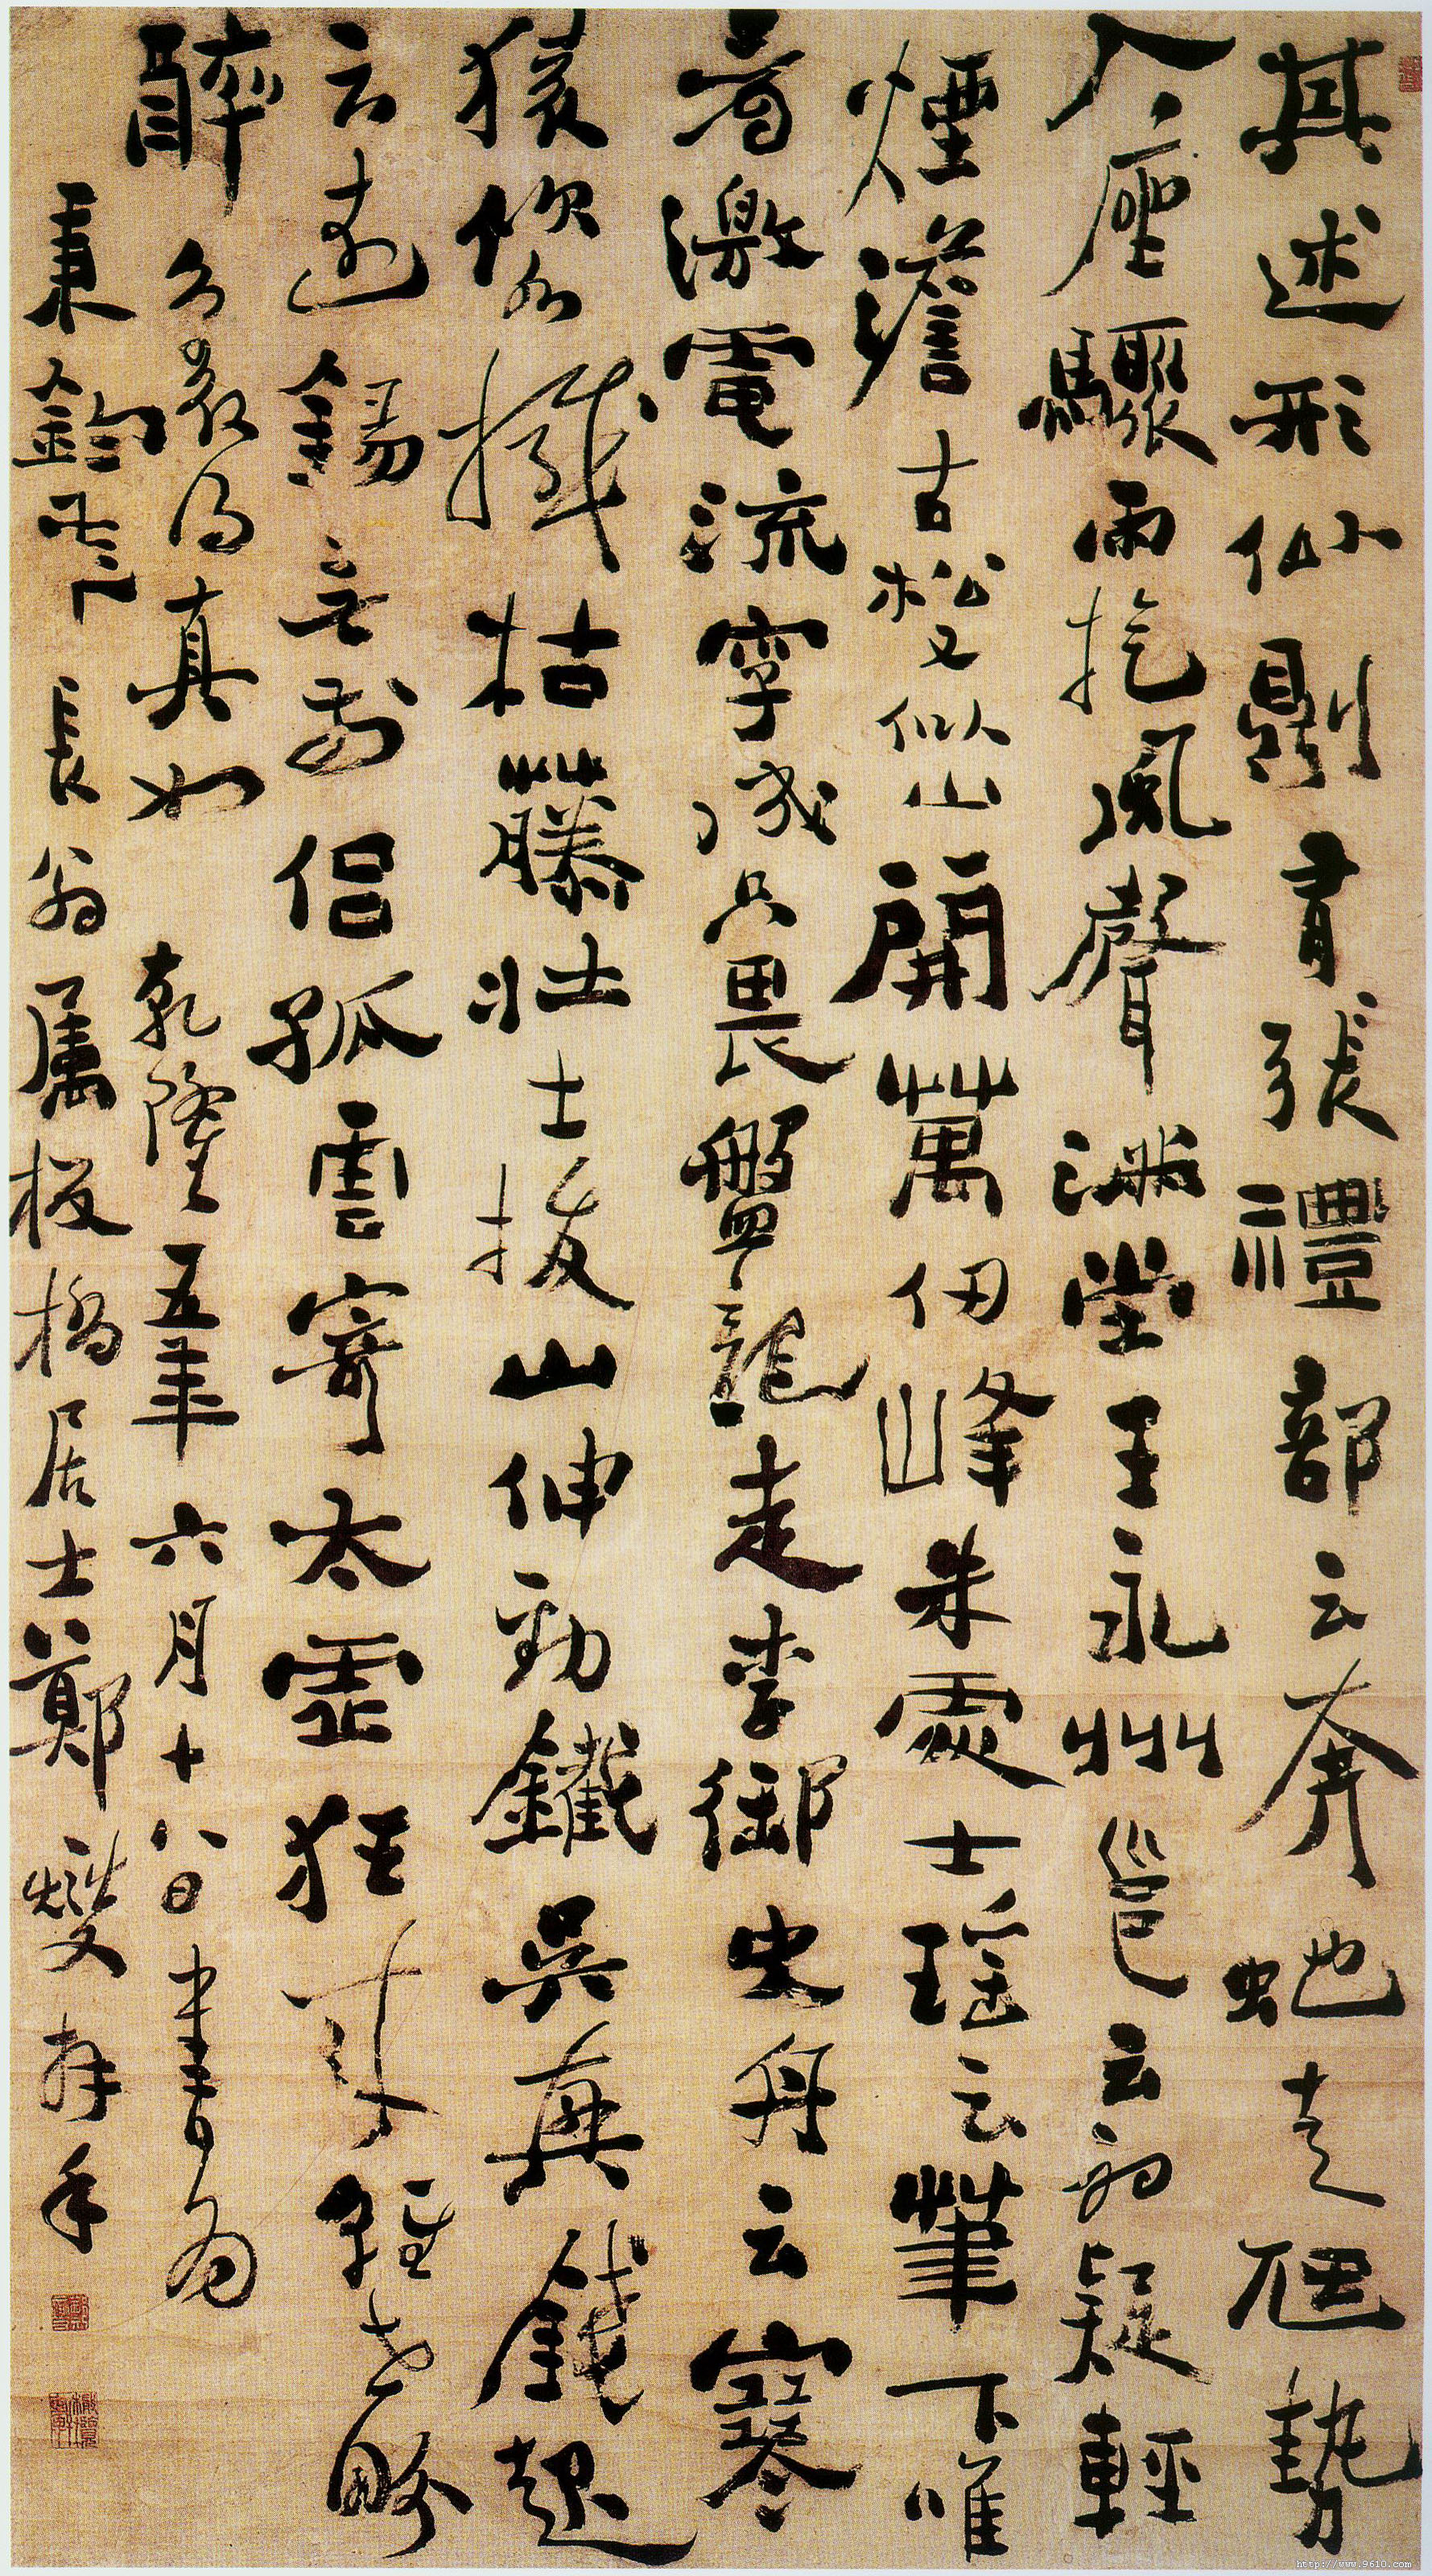 其述形似則有張澧部云奔蛇走虺勢
入座驟雨旋風聲滿堂王永州邕云初疑輕
煙澹古松又似山開萬仞峰朱處士瑤云筆下唯
看激電流字成只畏盤龍走李御史舟云寒
猿飲水撼枯藤壯士拔山伸勁鐵吳興錢起
云遠錫無前侶孤雲寄太虛狂來輕世界
醉裏得真如 乾隆五年六月十八日書為
秉鈞長翁屬板橋居士鄭燮拜手
http://www.9610.com